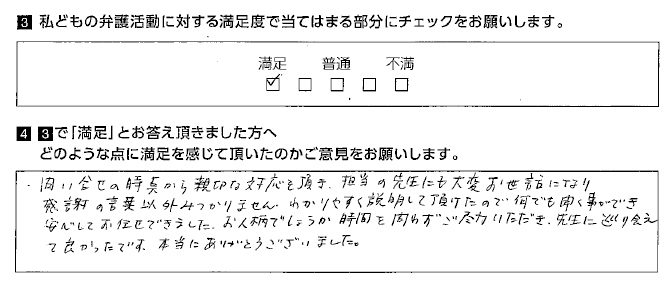 3 私どもの弁護活動に対する満足度で当てはまる部分にチェックをお願いします。
満足 普通 不満
4 3で「満足」とお答え頂きました方へ
どのような点に満足を感じて頂いたのかご意見をお願いします。
・問い合せの時点から親切な対応を頂き、担当の先生にも大変お世話になり
感謝の言葉以外みつかりません。わかりやすく説明して頂けたので何でも聞く事ができ
安心してお任せできました。お人柄でしょうか時間を問わずご尽力いただき、先生に巡り会え
て良かったです。本当にありがとうございました。